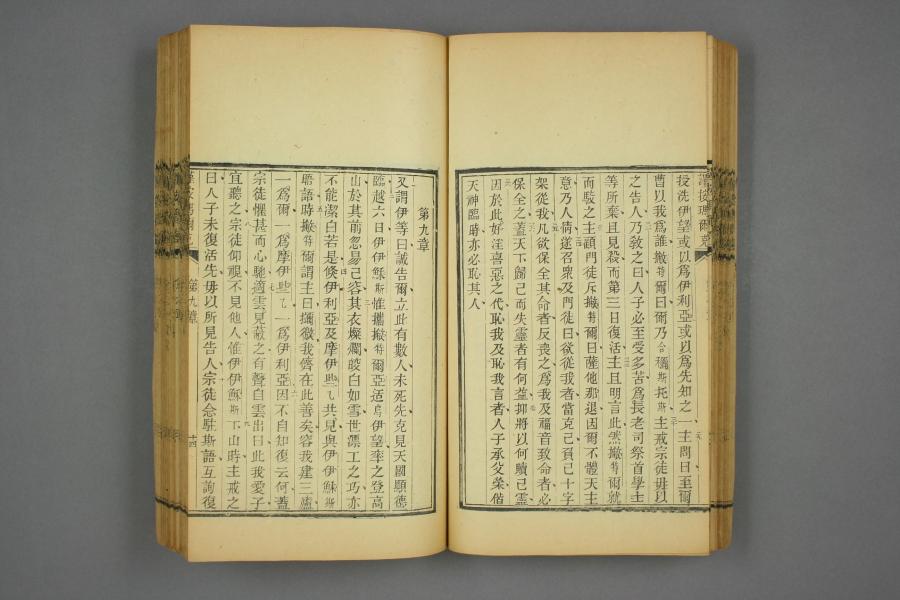 授洗伊望或以爲伊利亞或以爲先知之一主問曰至爾
曹以我爲誰撇特爾曰爾乃合穪斯托斯主戒宗徒毋以
之告人乃敎之曰人子必至受多苦爲長老司祭首學士
等所棄且見殺而第三日復活主且明言此然撇特爾就
而駮之主顧門徒斥撇特爾曰薩他那退因爾不體天主
意乃人情遂召衆及門徒曰欲從我者當克己負己十字
架從我凡欲保全其命者反喪之爲我及福音致命者必
保全之蓋天下歸己而失靈者有何益抑將以何贖己靈
因於此奸淫喜惡之代恥我及恥我言者人子承父榮偕
天神臨時亦必恥其人
第九章
又謂伊等曰誠告爾立此有數人未死先克見天國顯德
臨越六日伊伊穌斯惟攜撇特爾亞适烏伊望率之登高
山於其前忽易己容其衣燦爛皎白如雪世漂工之巧亦
不能潔白若是倏伊利亞及摩伊些乚共見與伊伊穌斯
晤語時撇特爾謂主曰攔微我儕在此善矣容我建三廬
一爲爾一爲摩伊些乚一爲伊利亞因不自知復云何蓋
宗徒懼甚而心馳適雲見蔽之有聲自雲出曰此我愛子
宜聽之宗徒仰視不見他人惟伊伊穌斯下山時主戒之
曰人子未復活先毋以所見告人宗徒念駐斯語互詢復
第九章
十四